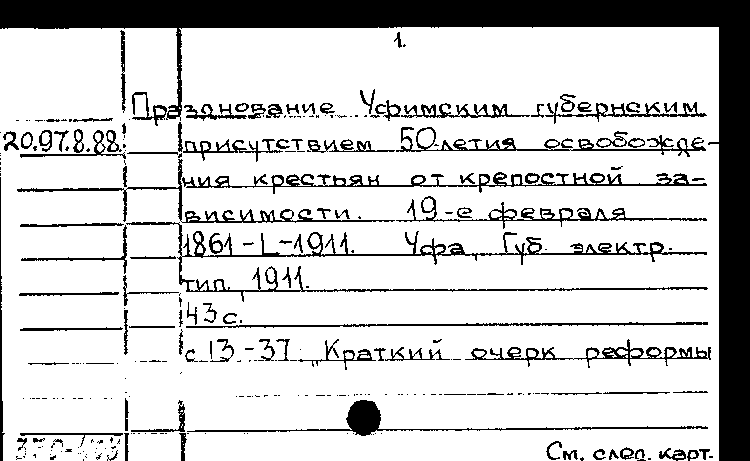 1.
Празднование Уфимским губернским
20.97.8.88. присутствием 50-летия освобожде-
ния крестьян от крепостной за-
висимости. 19-е февраля
1861-L-1911. Уфа, Губ. электр.
тип., 1911.
43 с.
с 13-37: „Краткий очерк реформы
См. след. карт.